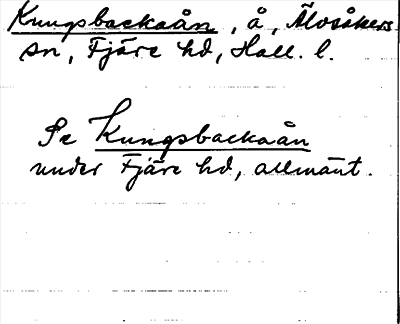 Kungsbackaån, å, Älvsåkers
sn, Fjäre hd, Hall. l.
Se Kungsbackaån
under Fjäre hd, allmänt.